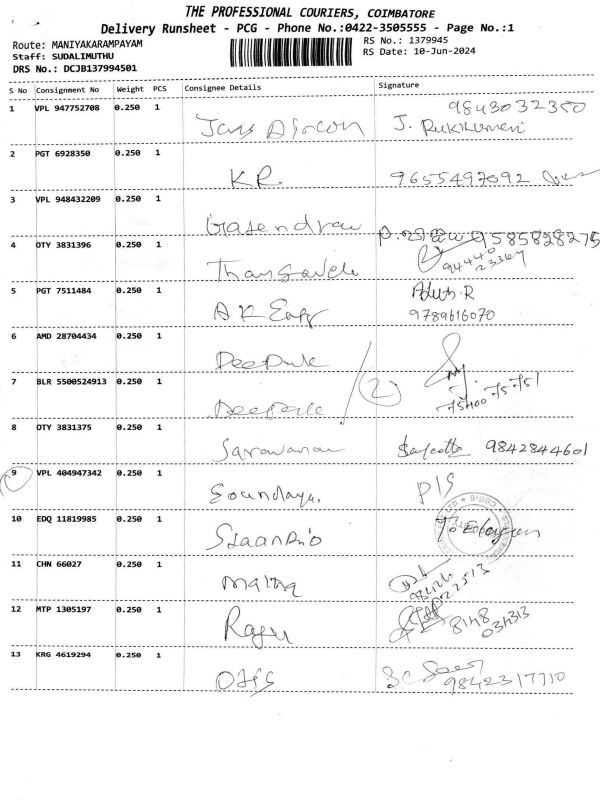 THE PROFESSIONAL COURIERS, COIMBATORE
Delivery Runsheet - PCG - Phone No.:0422-3505555 - Page No.:1
Route: MANIYAKARAMPAYAM
RS No.: 1379945
Staff: SUDALIMUTHU
RS Date: 10-Jun-2024
DRS No.: DCJB137994501
S No Consignment No Weight PCS Consignee Details Signature
1 VPL 947752708 0.250 1 9843032350
J.
2 PGT 6928350 0.250 1 K.R. 9655497092
3 VPL 948432209 0.250 1 Gajendran 9585828275
4 OTY 3831396 0.250 1 94440
23367
5 PGT 7511484 0.250 1 A R Engg
9789616070
6 AMD 28704434 0.250 1
7 BLR 5500524913 0.250 1 2 75400 75751
8 OTY 3831375 0.250 1 Saravanan 9842844601
9 VPL 404947342 0.250 1 Soundarya. P/S
10 EDQ 11819985 0.250 1
11 CHN 66027 0.250 1 Maitha 98426
22513
12 MTP 1305197 0.250 1 Raju 8148
034313
13 KRG 4619294 0.250 1 Otis 9842317710